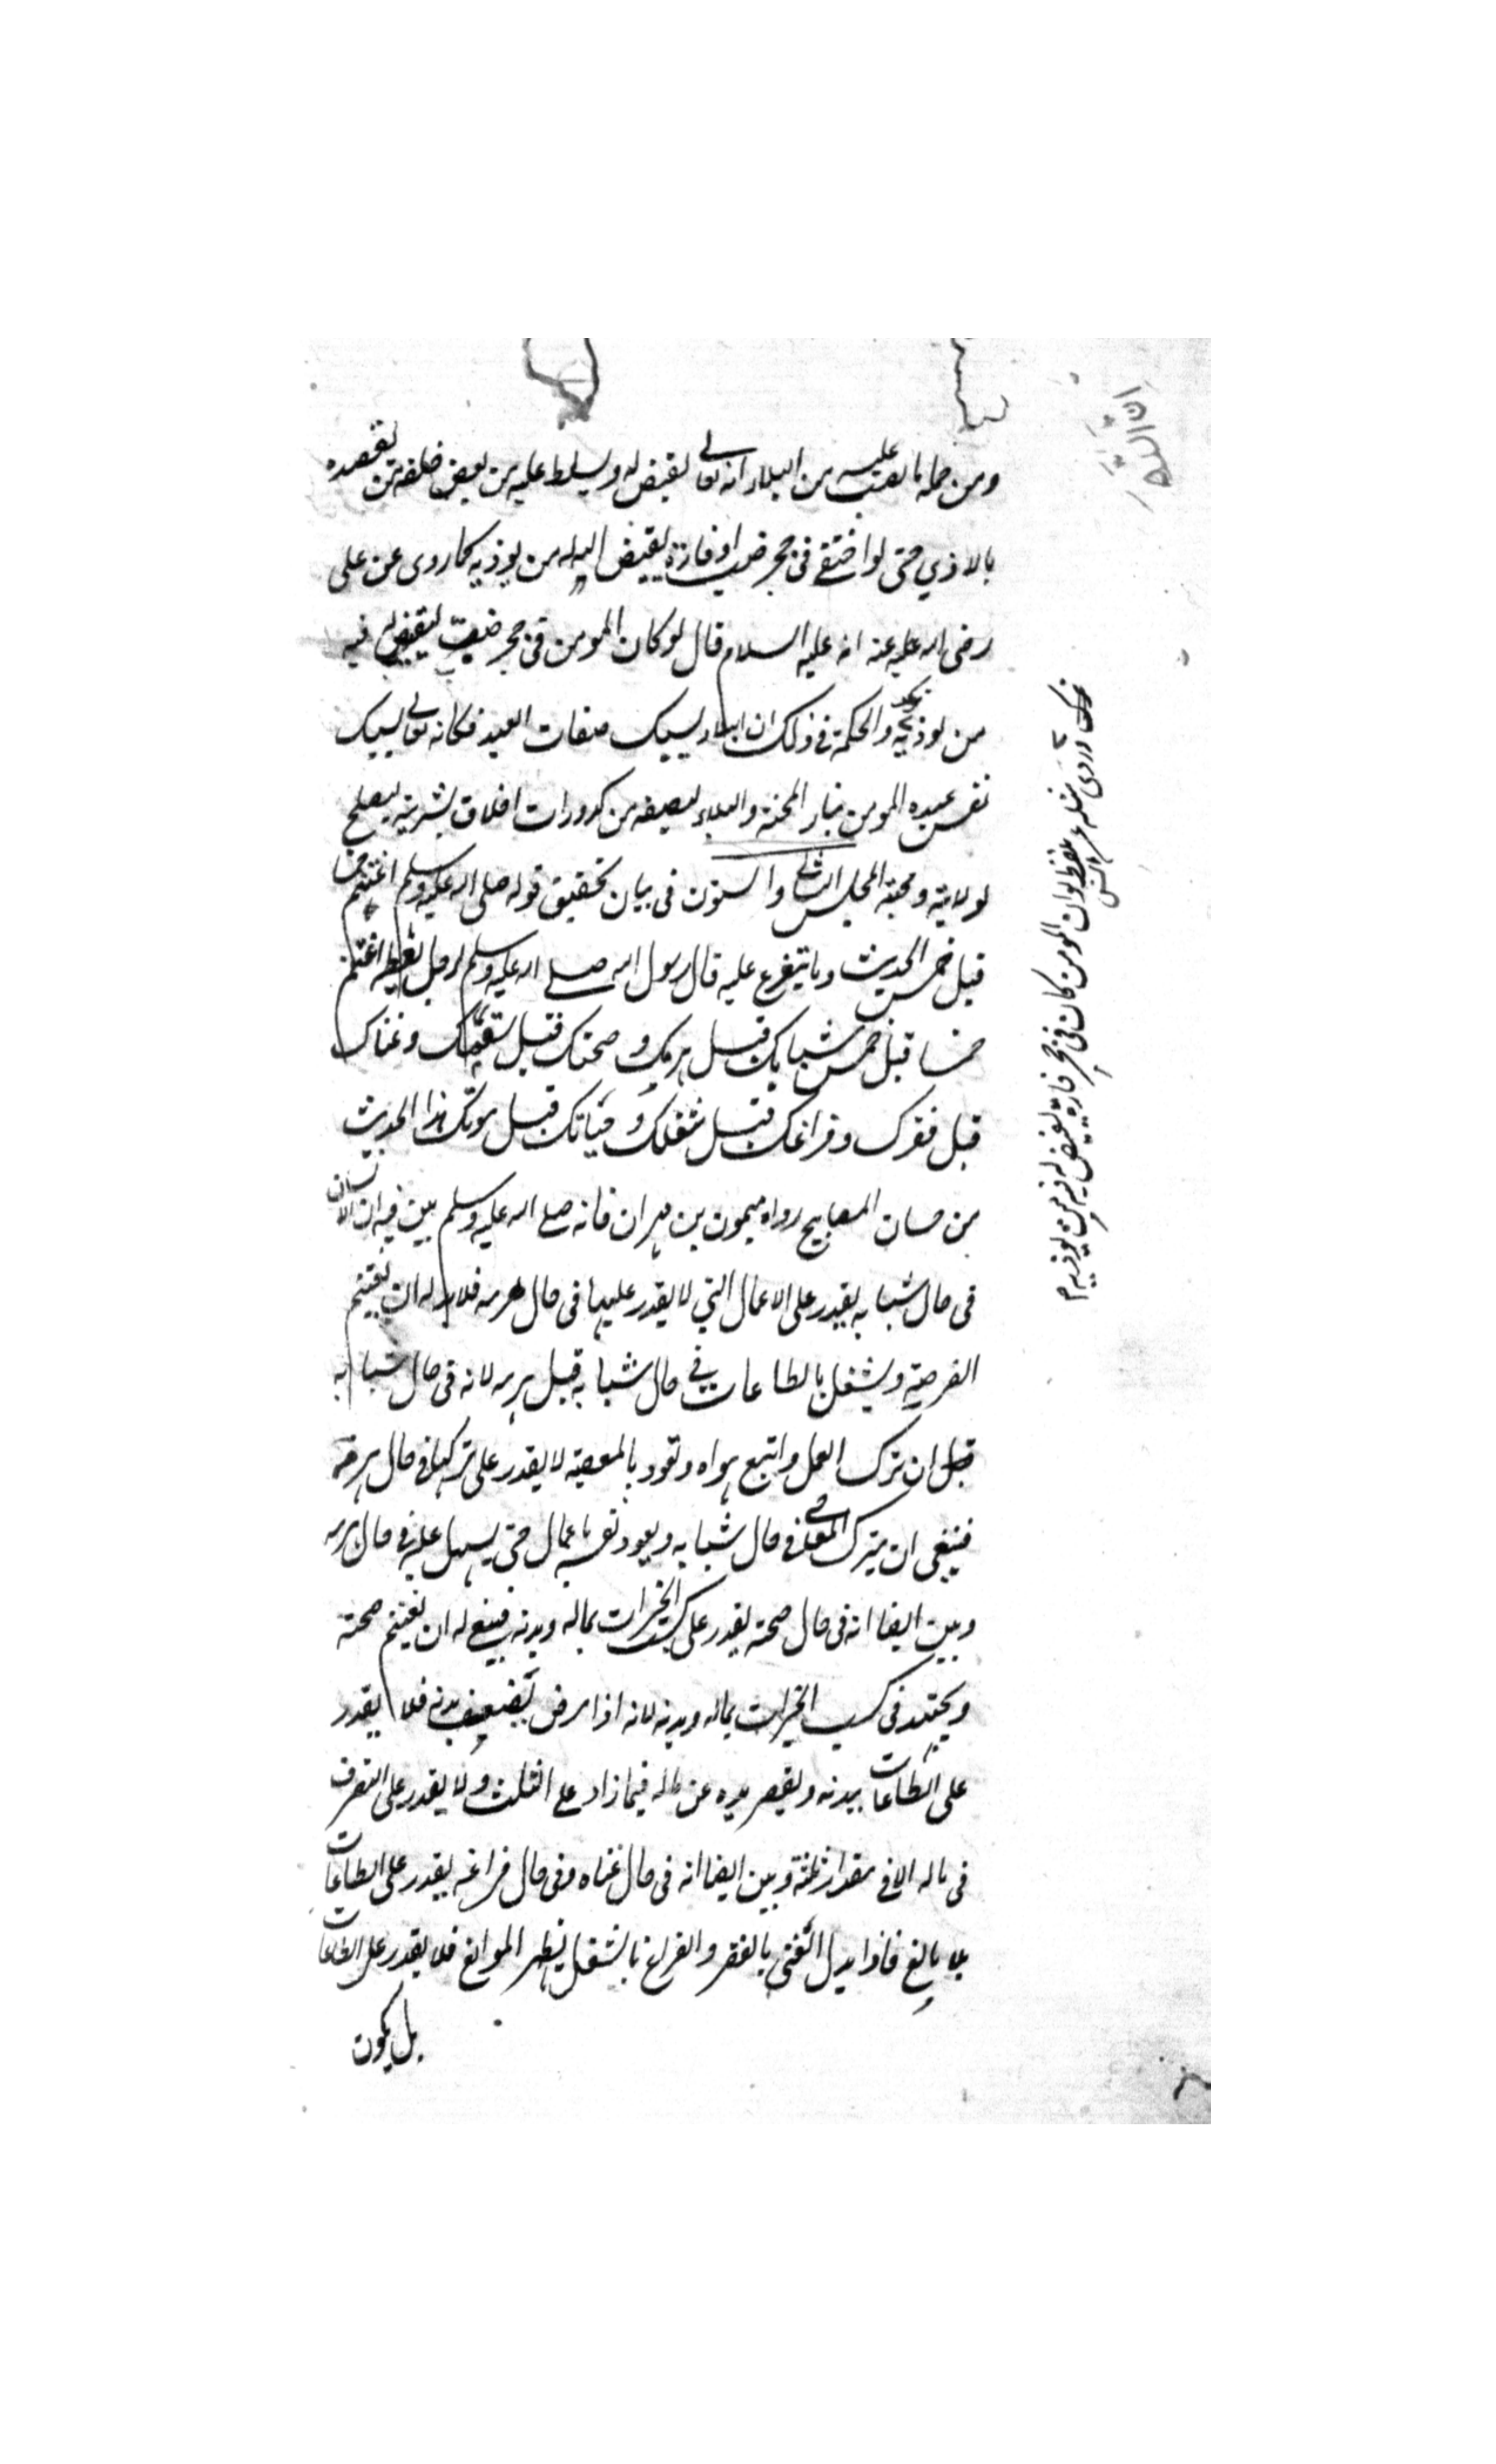 ومن جملة ما يصب عليه من البلاء انه تعالى يقيض له ويسلط عليه من بعض خلقه من يقصده
بالاذي حتى لو اختفى في جحر ضب او فارة يقيض الله له من يوذيه كما روى عن على
رضى الله عنه انه عليه السلام قال لو كان المومن فى جحر ضب لقيض له فيه
من يوذيه والحكمة فى ذلك ان البلاء يسبك صفات العبد فكانه تعالى يسبك
نفس عبده المومن بنار المحنة والبلاء ليصفيه من كدورات اخلاق بشريته ليصلح
لولايته ومحبته المجلس الثانى والستون فى بيان تحقيق قوله صلى الله عليه وسلم اغتنم خمسا
قبل خمس الحديث وما يتفرع عليه قال رسول الله صلى الله عليه وسلم لرجل يعظه اغتنم
خمسا قبل خمس شبابك قبل هرمك وصحتك قبل سقمك وغناك
قبل فقرك وفراغك قبل شغلك وحياتك قبل موتك هذا الحديث
من حسان المصابيح رواه ميمون بن مهران فانه صلى الله عليه وسلم بين فيه ان الانسان
فى حال شبابه يقدر على الاعمال التي لا يقدر عليها فى حال هرمه فلا بد له ان يغتنم
الفرصة ويشتغل بالطاعات في حال شبابه قبل هرمه لانه فى حال شبابه
ان ترك العمل واتبع هواه وتعود بالمعصية لا يقدر على تركها فى حال هرمه
فينبغى ان يترك المعاصى فى حال شبابه ويعود نفسه باعمال حتى يسهل عليه فى حال هرمه
وبين ايضا انه فى حال صحته يقدر على كسب الخيرات بماله وبدنه فينبغى له ان يغتنم صحته
ويجتهد فى كسب الخيرات بماله وبدنه لانه اذا مرض يضعف بدنه فلا يقدر
على الطاعات ببدنه ويقصر يده عن ماله فيما زاد على الثلث ولا يقدر على التصرف
فى ماله الا فى مقدار ثلثه وبين ايضا انه فى حال غناه وفى حال فراغه يقدر على الطاعات
بلا مانع فاذا بدل الغنى بالفقر والفراغ بالشغل يظهر الموانع فلا يقدر على الطاعات
بل يكون
وروى مثله بلفظ لو ان المومن كان فى جحر فارة لقيض له فيه من يوذيه
عن انس
ان الله